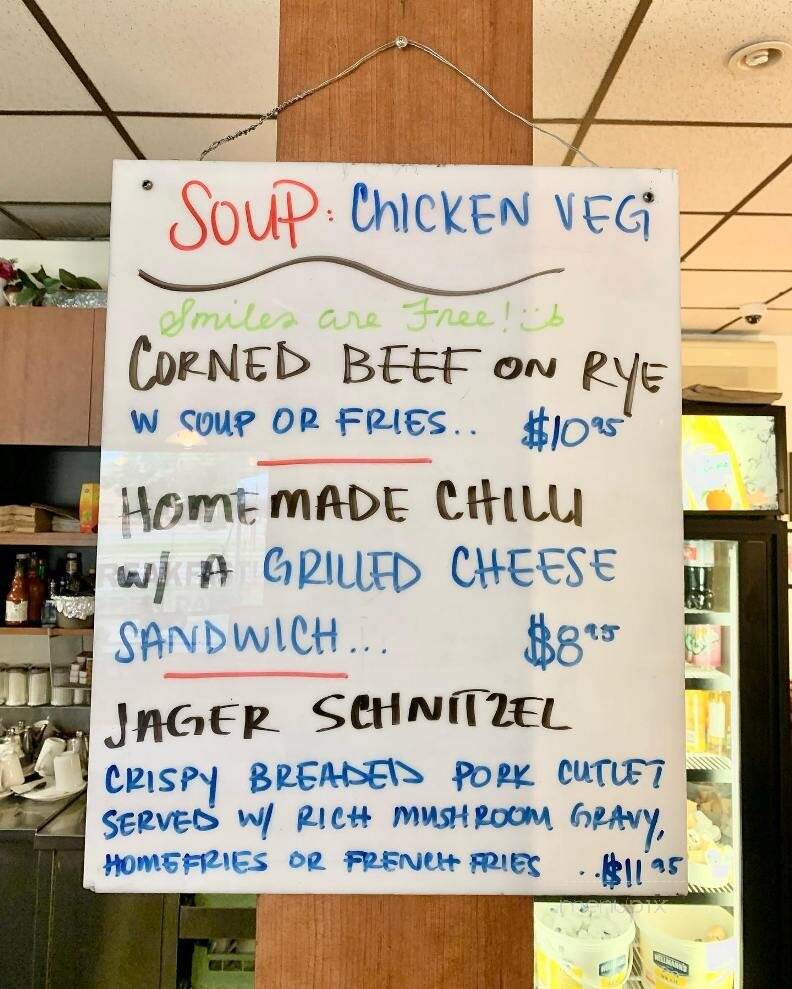 SOUP: CHICKEN VEG
Smiles are Free!
CORNED BEEF ON RYE
W SOUP OR FRIES.. $10.95
HOMEMADE CHILLI
W/ A GRILLED CHEESE
SANDWICH... $8.95
JAGER SCHNITZEL
CRISPY BREADED PORK CUTLET
SERVED W/ RICH MUSHROOM GRAVY,
HOMEFRIES OR FRENCH FRIES ..$11.95
menupix
HELLMANN'S